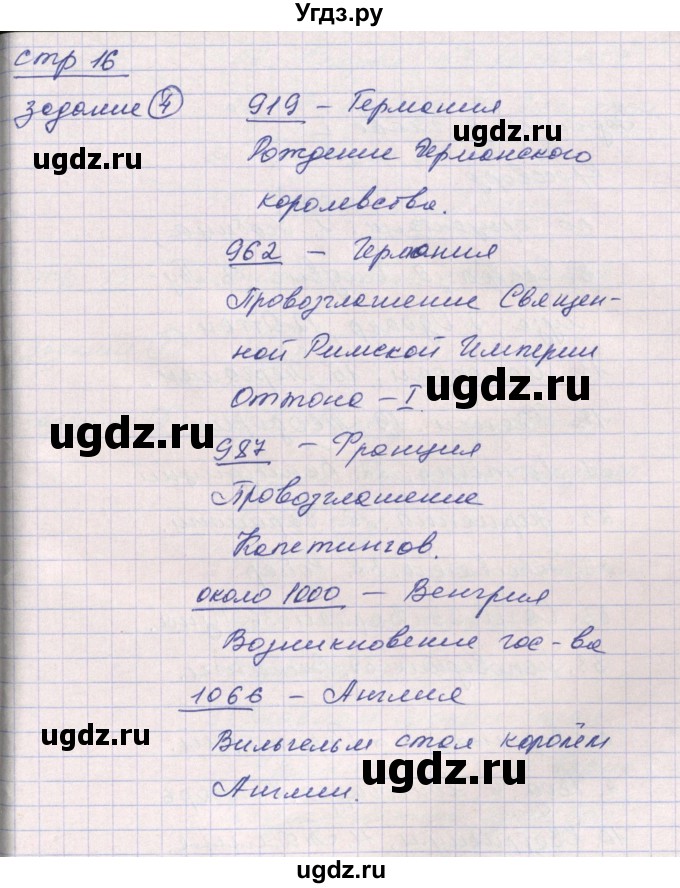 Угдз.ру
стр 16
задание 4 919 – Германия
ugdz.ru ugdz.ru
Рождение Германского
королевства.
962 – Германия
Провозглашение Священ-
ной Римской Империи
ugdz.ru
Оттона – I.
ugdz.ru
987 – Франция
Провозглашение
Капетингов.
ugdz.ru
около 1000 – Венгрия
Возникновение гос-ва
1066 – Англия
ugdz.ru
Вильгельм стал королём
ugdz.ru
Англии.
ugdz.ru